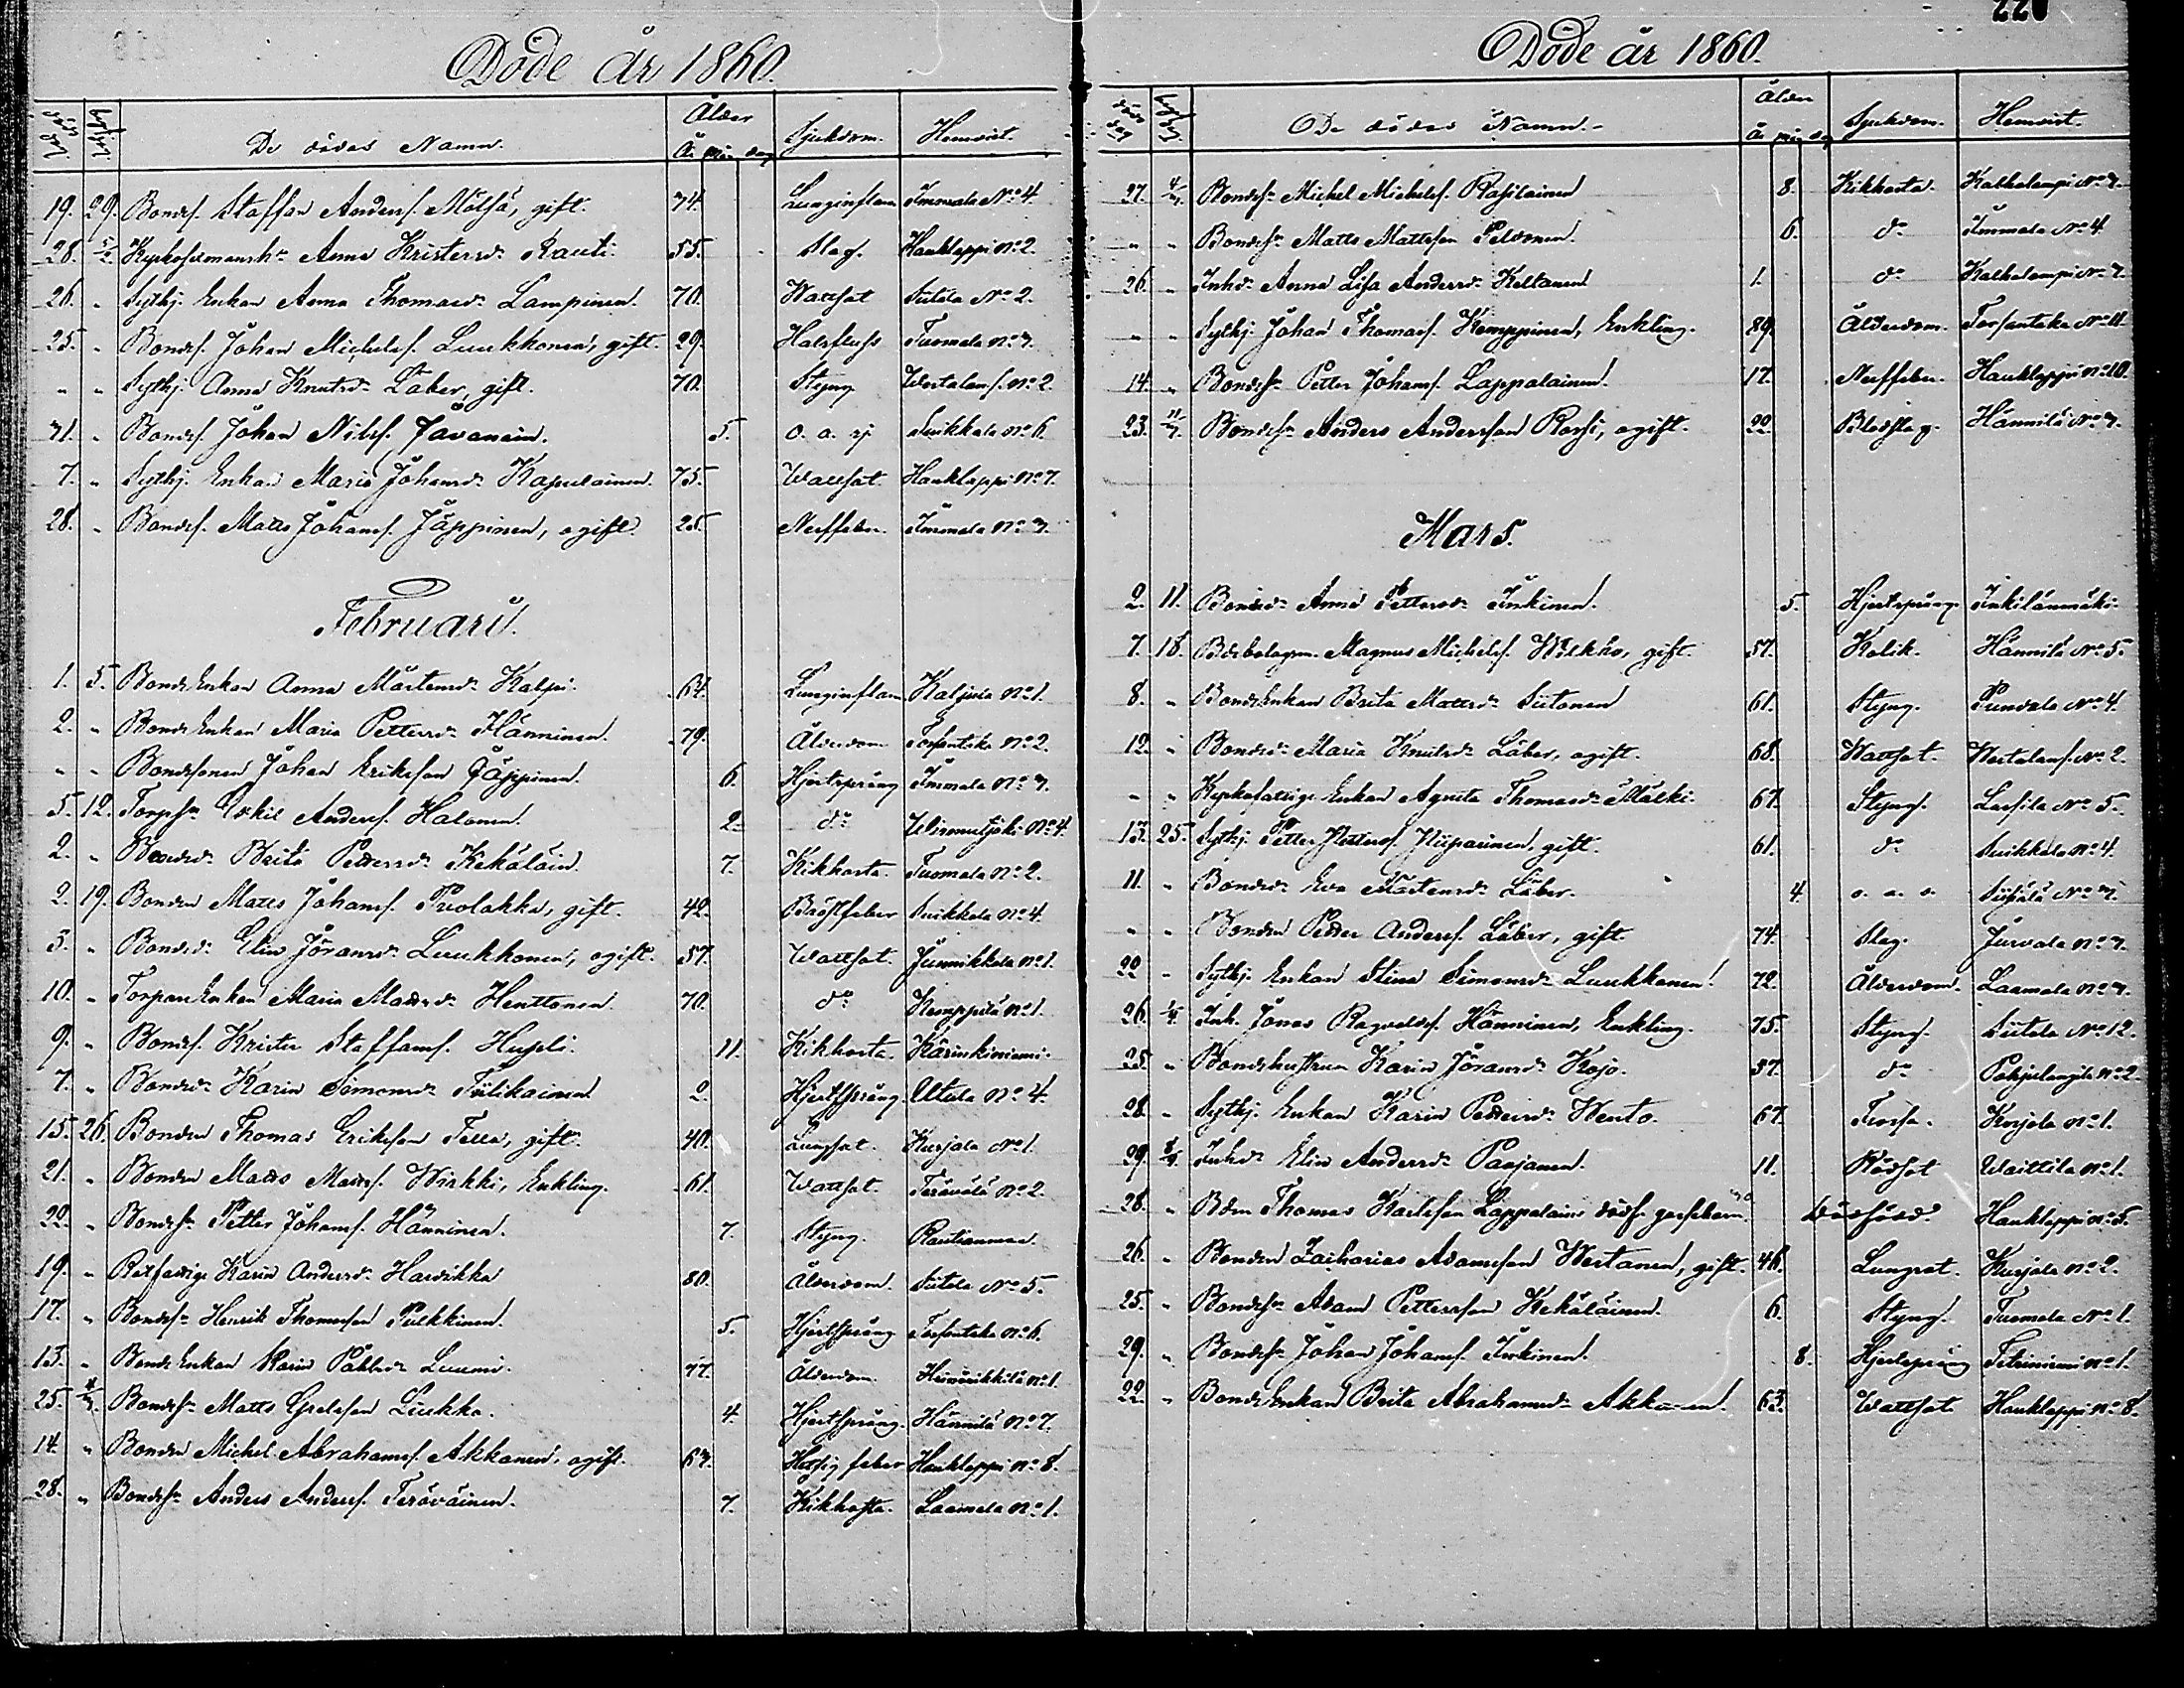 Döde år 1860.
döds dag begr. dag De dödas Namn. Ålder År mån dag Sjukdom. Hemvist.
19. 29. Bondes. Staffan Anderss. Mötsä, gift. 74. Lunginflam Immala No 4.
28. 5/2. Anna Kristersdr Rauti. 55. Slag. Haukloppi No 2.
26. " Sytkj. Enkan Anna Thomasdr Lampinen. 70. Wattsot Siitola No 2.
25. " Bondes. Johan Michelss. Luukkonen, gift. 29. Halsfluss Tuomala No 3.
" " Sytkj. Anna Knutsdr Läber, gift. 70. Styng No 2.
31. " Bondes. Johan Nilss. Javanain. 5. o. a. sj Suikkala No 6.
7. " Sytkj. Enkan Maria Johansdr Kapulainen. 75. Wattsot. Haukloppi No 7.
28. " Bondes. Matts Johanss. Jäppinen, ogift. 25. Nerffeber. Immala No 3.
Februari.
1. 5. BondeEnkan Anna Mårtensdr Kalpi. 64. Lunginflam. Kaljula No 1.
2. " BondeEnkan Maria Pettersdr Hänninen. 79. Ålderdom Torsantaka No 2.
" " Bondesonen Johan Eriksson Jäppinen. 6. Hjertsprång Immala No 3.
5. 12. Torps. Eskil Anderss. Halonen. 2. do No 4.
2. " Bondedr Brita Pettersdr Kekäläin. 7. Kikhosta. Tuomala No 2.
2. 19. Bonden Matts Johanss. Puolakka, gift. 42. Bröstfeber Suikkala No 4.
3. " Bondedr Elin Jöransdr Luukkonen, ogift. 57. Wattsot. Junnikkala No 1.
10. " TorpareEnkan Maria Mattsdr Henttonen. 70. do Kemppilä No 1.
9. " Bondes. Krister Staffanss. Hupli. 11. Kikhosta. Kärinkiniemi.
7. " Bondedr Karin Simonsdr Tiilikainen 2. Hjertsprång. Utula No 4.
15. 26. Bonden Thomas Eriksson Tella, gift. 40. Lungsot. Kurjala No 1.
21. " Bonden Matts Mattss. Wirkki, Enkling. 61. Wattsot. Terävälä No 2.
22. " Bondes. Petter Johanss. Hänninen. 7. Styng. Rautianmaa.
19. " Karin Andersdr Harvikka 80. Ålderdom. Siitola No 5.
17. " Bondes. Henrik Thomasson Pulkkinen. 5. Hjertsprång Torsantaka No 6.
13. " BondeEnkan Karin Påhlsdr Luumi. 77. Ålderdom. No 1.
25. 4/3. Bondes. Matts Liukko. 4. Hjertsprång. Hännilä No 7.
14. " Bonden Michel Abrahamss. Akkanen, ogift. 63. Hetsig feber Haukloppi No 8.
28. " Bondes. Anders Anderss. Teräväinen. 7. Kikhosta. Laamala No 1.
220
Döde år 1860.
döds dag begr. dag De dödas Namn. Ålder År mån dag Sjukdom. Hemvist.
27. 4/3. Bondes. Michel Michelss. Rasilainen 8. Kikhosta. Kalkolampi No 3.
" " Bondes. Matts Mattsson Peldonen. 6. do Immala No 4
26. " Inhdr Anna Lisa Andersdr Keltanen 1. do Kalkolampi No 3.
" " Sytkj. Johan Thomass. Kemppinen, Enkling. 89. Ålderdom. Torsantaka No 11.
14. " Bondes. Petter Johanss. Lappalainen. 17. Nerffeber. Haukloppi No 10.
23. 11/3. Bondes. Anders Andersson Rossi, ogift. 22. Blodslag. Hännilä No 3.
Mars.
2. 11. Bondedr Anna Pettersdr Inkinen. 5. Hjertsprång. Inkilänmäki.
7. 18. Magnus Michelss. Wilkko, gift. 57. Kolik. Hännilä No 5.
8. " BondeEnkan Brita Mattsdr Siitonen 61. Styng. Pundala No 4.
12. " Bondedr Maria Knutsdr Läber, ogift. 68. Wattsot. No 2.
" " Kyrkofattige Enkan Agneta Thomasdr Mälki. 67. Styng. Lassila No 5.
13. 25. Sytkj. Petter Petterss. Piiparinen, gift. 61. do Suikkala No 4.
11. " Bondedr Eva Mårtensdr Läber. 4. o. a. s. No 3.
" " Bonden Petter Anderss. Läber, gift. 74. Slag. Jurvala No 3.
22 " Sytkj. Enkan Stina Simonsdr Luukkonen. 72. Ålderdom. Laamala No 3.
26. 1/4. Inh. Jonas Ragvaldss. Hänninen, Enkling. 75. Styng. Siitola No 12.
25. " Bondehustrun Karin Jöransdr Kojo. 37. do Pohjalankila No 2.
28. " Sytkj. Enkan Karin Pettersdr Wento. 67. Trossa. Korjola No 1.
29. 8/4. Inhdr Elin Andersdr Paajanen. 11. Rödsot Waittila No 1.
28. " Bden Thomas Karlsson Lappalains dödf. gossebarn. Dödfödd. Haukloppi No 5.
26. " Bonden Zacharias Adamsson Wertanen, gift. 46. Lungsot. Kurjala No 2.
25. " Bondes. Adam Pettersson Kekäläinen. 6. Styng. Tuomala No 1.
29. " Bondes. Johan Johanss. Inkinen. 8. Hjertsprång Tetriniemi No 1.
22. " BondeEnkan Brita Abrahamsdr Akkanen. 63. Wattsot Haukloppi No 8.